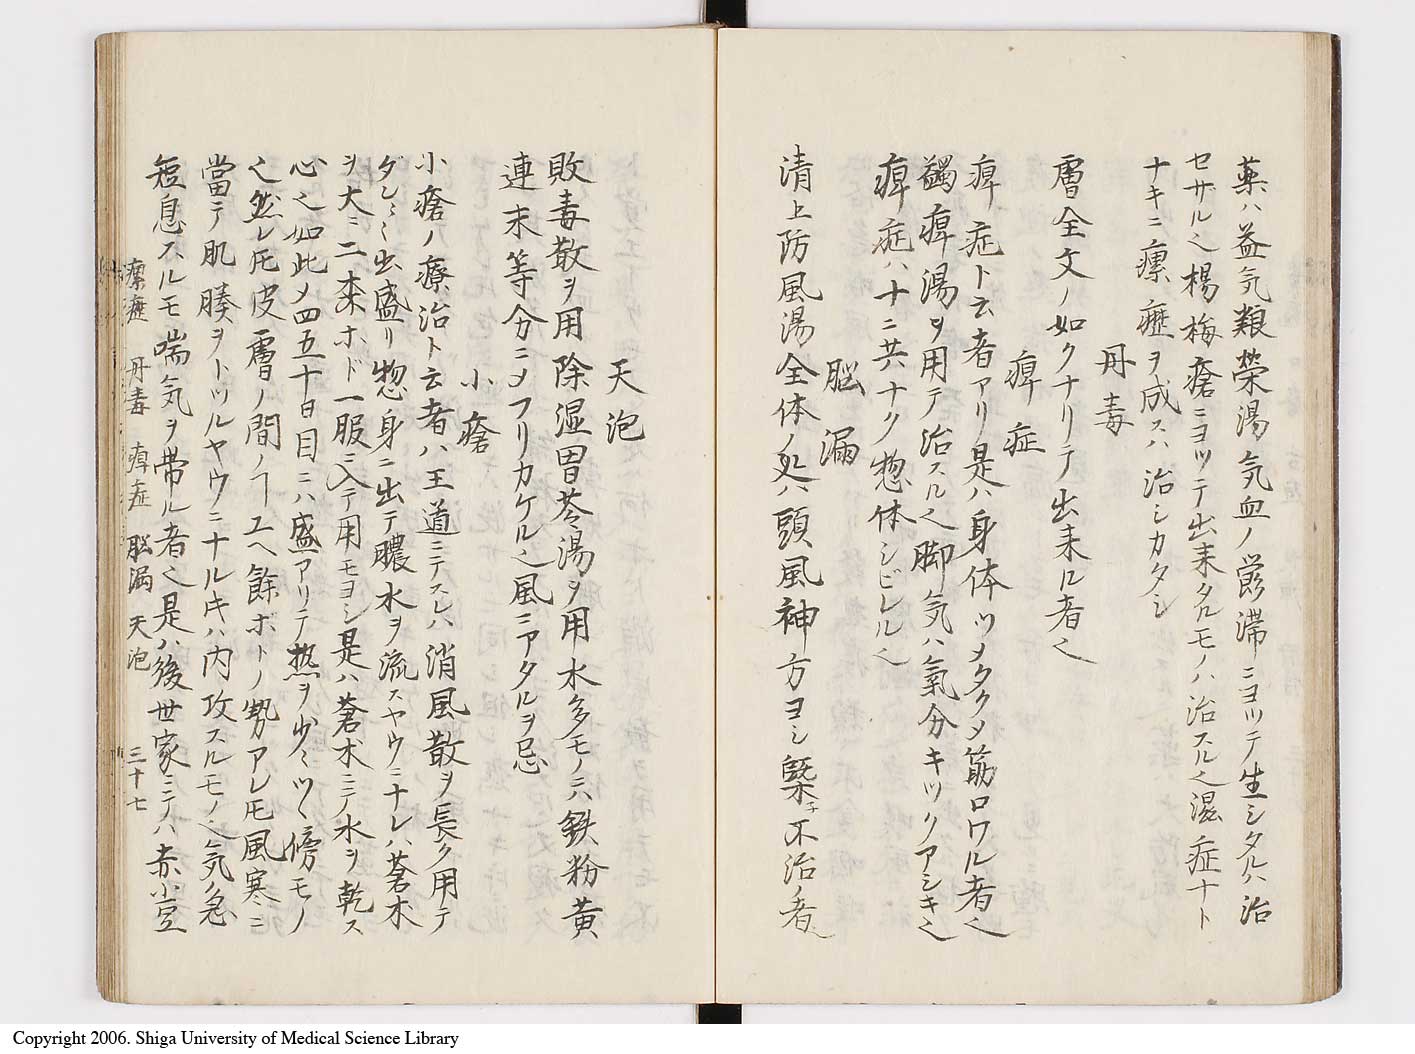 薬ハ益気粮榮湯気血ノ欝滞ニヨツテ生シタルハ治
セサル也楊梅瘡ニヨツテ出来タルモノハ治スル也湿症ナト
ナキニ瘰癧ヲ成スハ治シカタシ
丹毒
膚全文ノ如クナリテ出来ル者也
痺症
痺症ト云者アリ是ハ身体ツメタクメ筋ロワル者也
蠲痺湯ヲ用テ治スル也脚気ハ氣分キツクアシキ也
痺症ハ十ニ共ナク惣体シビレル也
脳漏
清上防風湯全体ノ処ハ頭風神方ヨシ槩チ不治ノ者也
天泡
敗毒散ヲ用除湿胃苓湯ヲ用水多モノニハ鉄粉黄
連末等分ニメフリカケル也風ニアタルヲ忌
小瘡
小瘡ノ療治ト云者ハ王道ニテスレハ消風散ヲ長ク用テ
ダン〻出盛リ惣身ニ出テ膿水ヲ流スヤウニナレハ蒼朮
ヲ大ニ二朱ホド一服ニ入テ用モヨシ是ハ蒼朮ニテ水ヲ乾ス
心也如此メ四五十日目ニハ盛アリテ熱ヲ少〻ツヽ傍モノ
也然レ𪜈皮膚ノ間ノヿユヘ餘ホトノ勢アレ𪜈風寒ニ
當テ肌腠ヲトツルヤウニナル𬼀ハ内攻スルモノ也気ノ急
短息スルモ喘気ヲ帯ル者也是ハ後世家ニテハ赤小豆
瘰癧 丹毒 痺症 脳漏 天泡 三十七
Copyright 2006. Shiga University of Medical Science Library